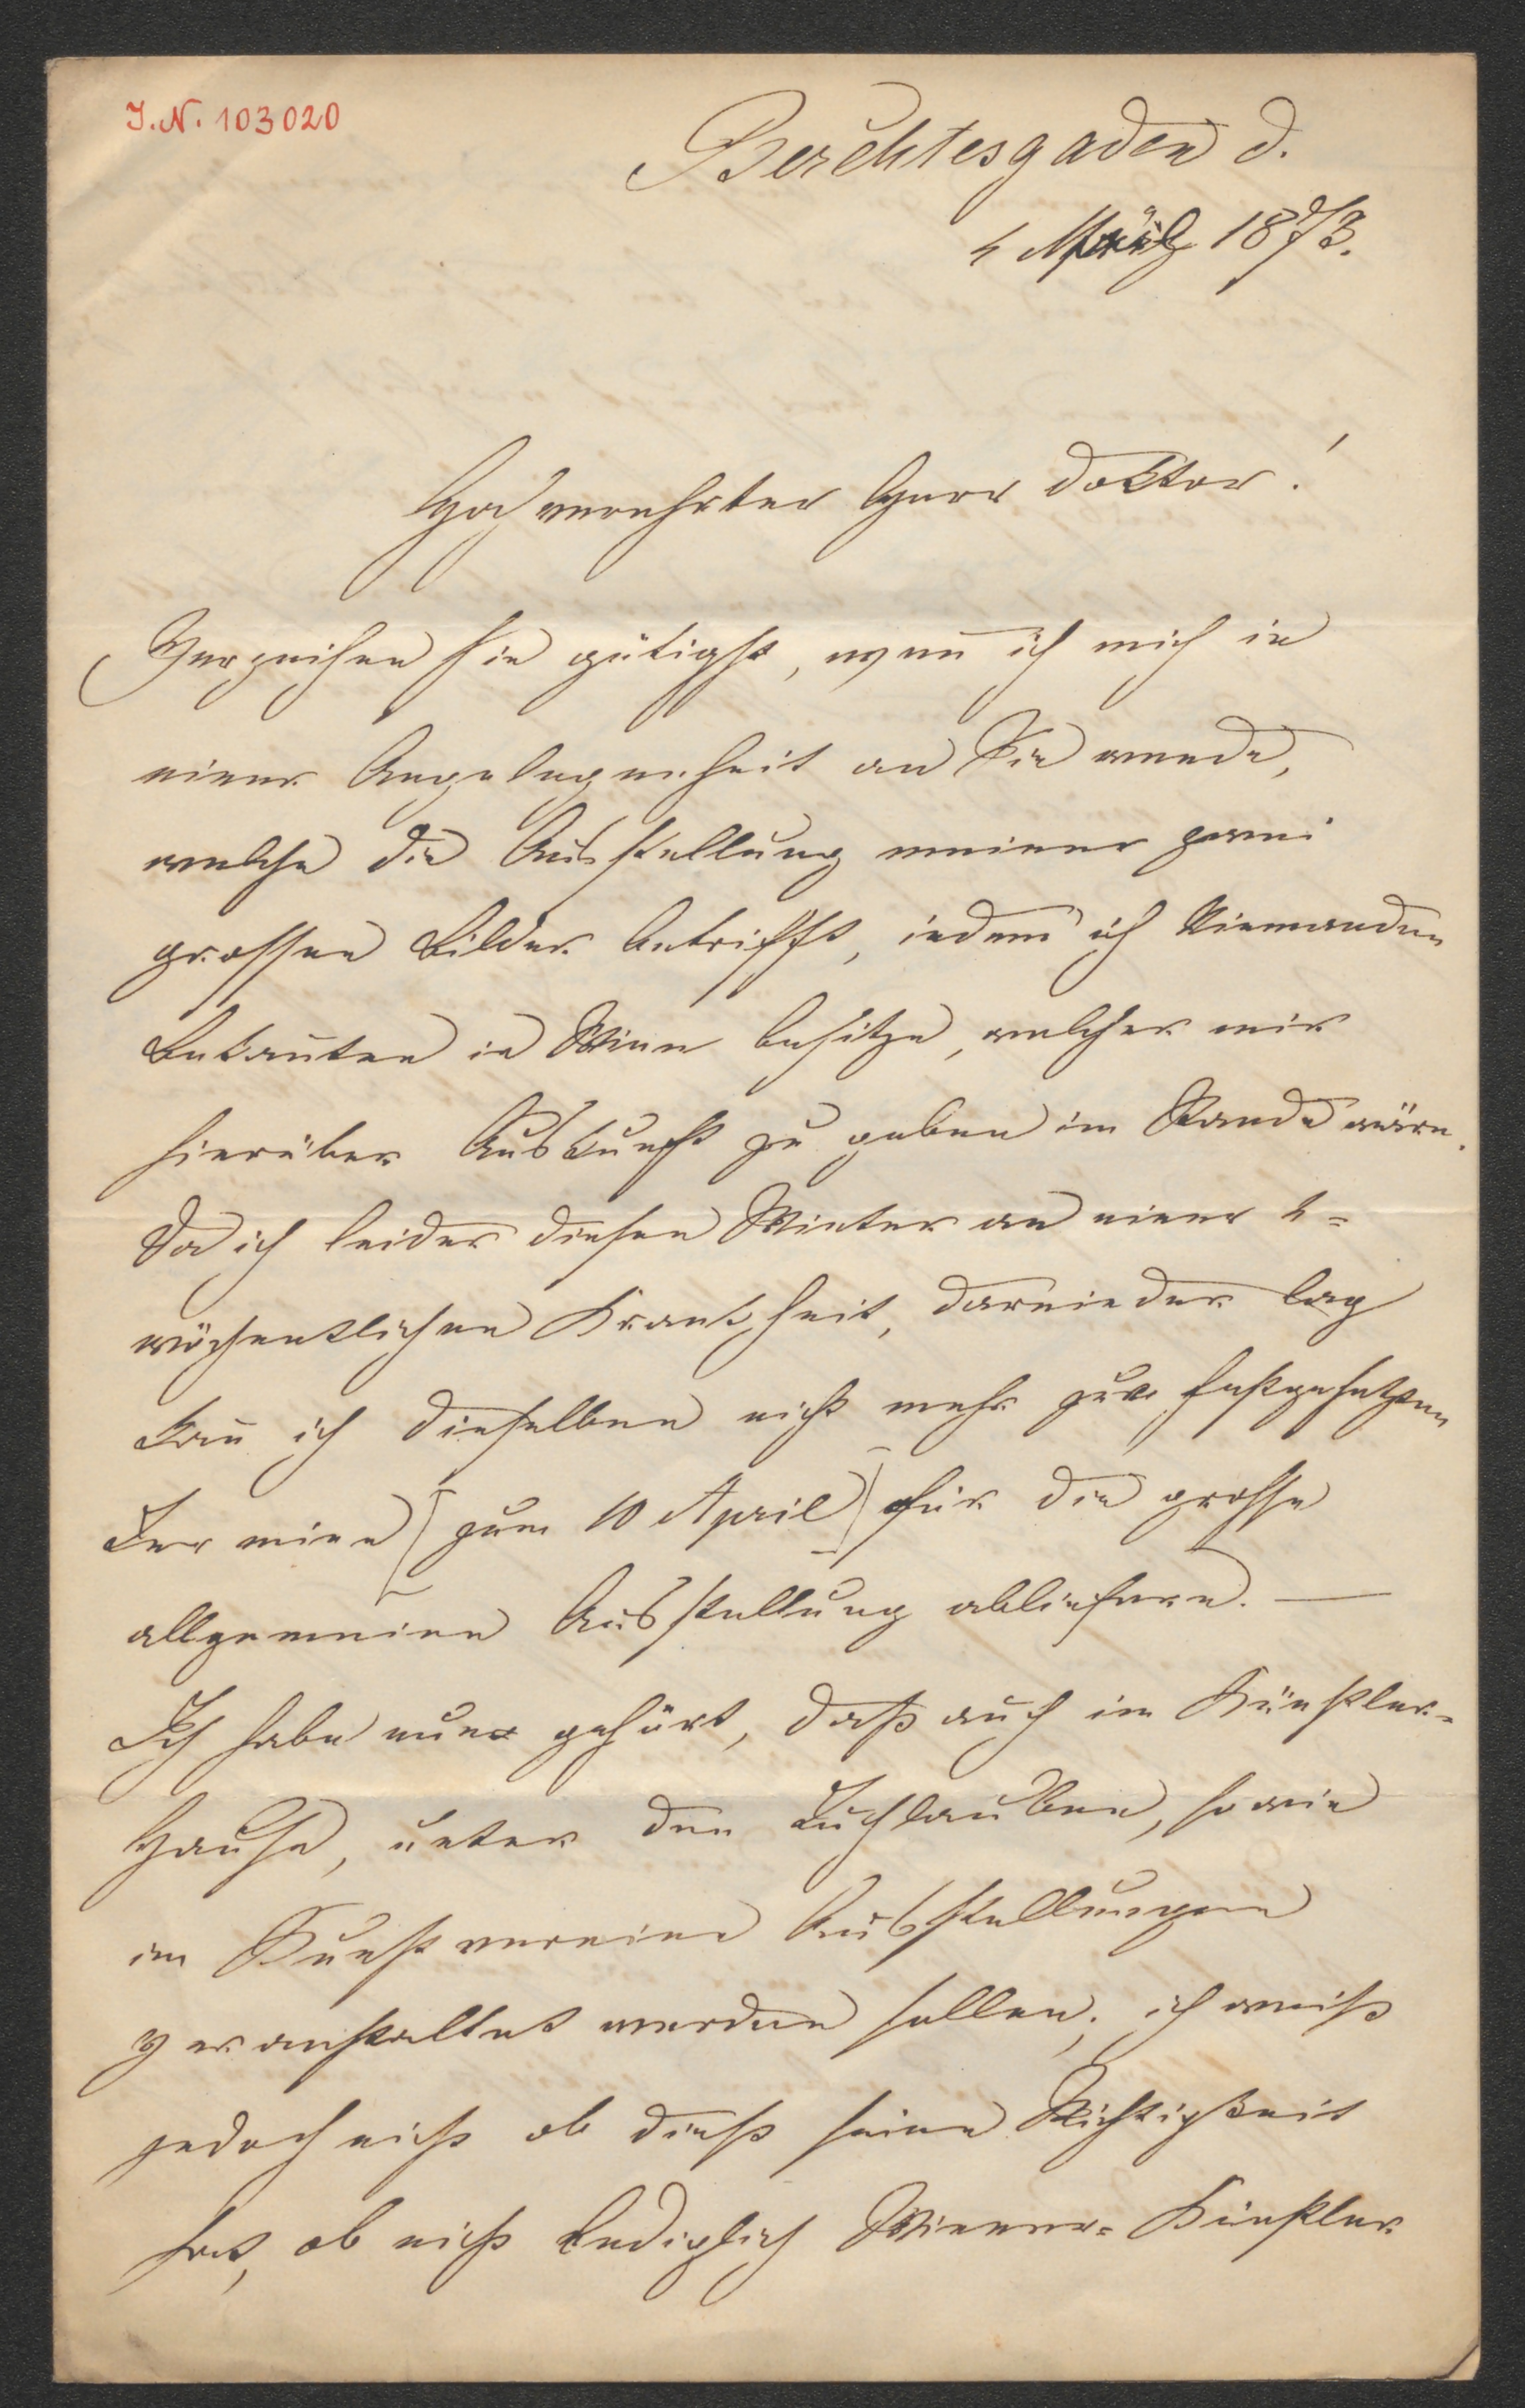 J.N. 103020
Berchtesgaden d.
4 März 1873.
Hochverehrter Herr Doktor!
Verzeihen Sie gütigst, wen̄ ich mich in
einer Angelegenheit an Sie wende,
welche die Ausstellung meiner zwei
grossen Bilder betrifft, indem ich Niemanden
Bekan̄ten in Wien besitze, welcher mir
hierüber Auskunft zu geben im Stande wäre.
Da ich leider diesen Winter an einer 4-
wöchentlichen Krankheit, darnieder lag
kan̄ ich dieselben nicht mehr zum festgesetzten
Termine (zum 10 April) für die grosse
allgemeine Ausstellung abliefern. —
Ich habe nun gehört, daß auch im Künstler-
Hause, unter den Tuchlauben, sowie
im Kunstvereine Ausstellungen
veranstaltet werden sollen; ich weiß
jedoch nicht ob dieß seine Richtigkeit
hat, ob nicht lediglich Wiener-Künstler